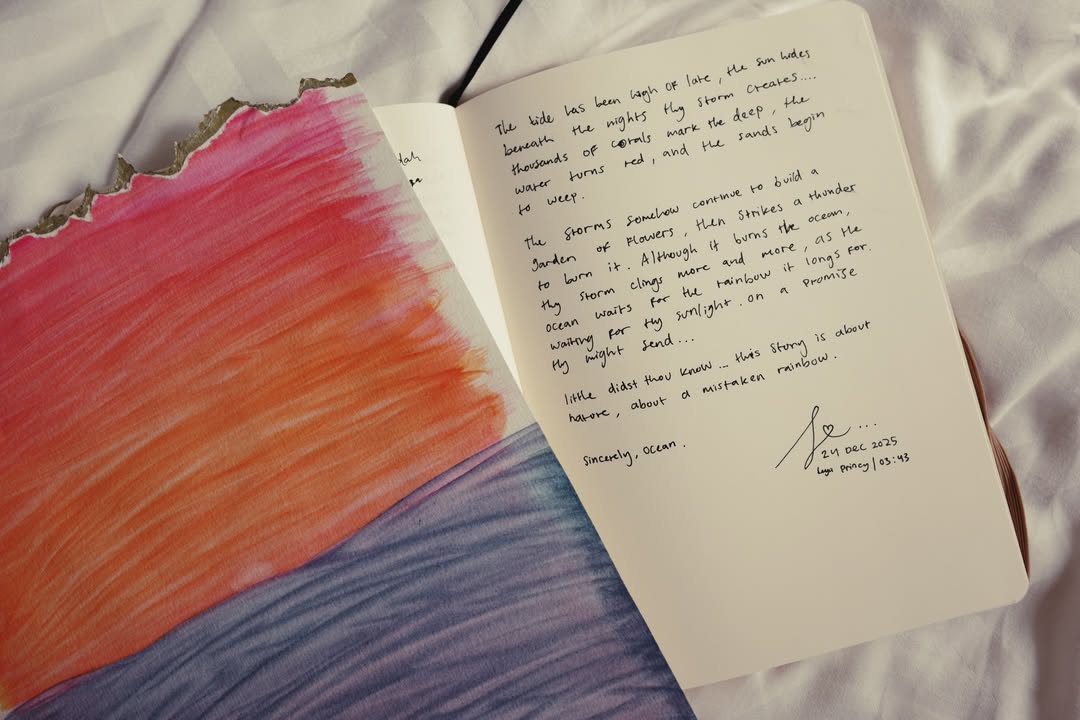 dah
The tide has been high of late, the sun hides
beneath the nights thy storm creates....
thousands of corals mark the deep, the
water turns red, and the sands begin
to weep.
The storms somehow continue to build a
garden of flowers, then strikes a thunder
to burn it. Although it burns the ocean,
thy storm clings more and more, as the
ocean waits for the rainbow it longs for.
waiting for thy sunlight. on a promise
thy might send...
little didst thou know... this story is about
nature, about a mistaken rainbow.
Sincerely, Ocean.
24 DEC 2025
03:43